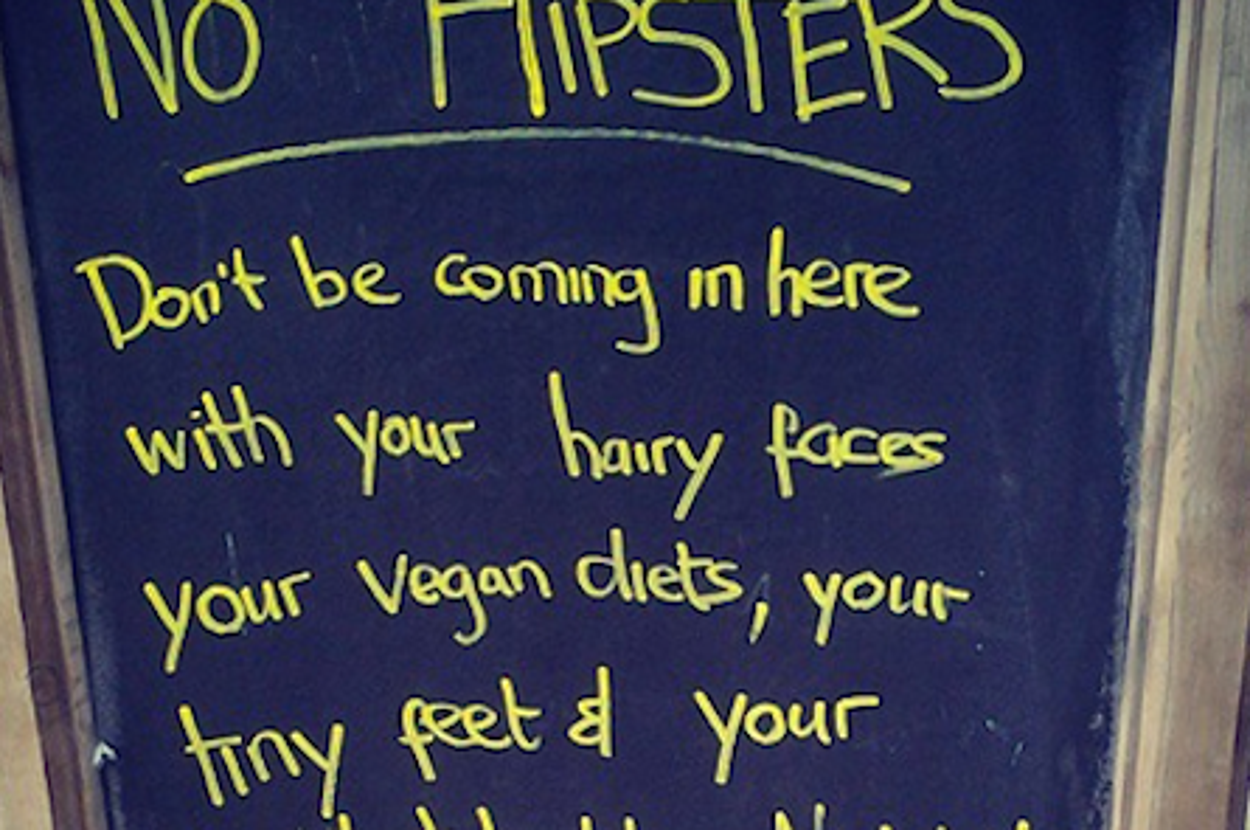 NO HIPSTERS
Don't be coming in here
with your hairy faces
your vegan diets, your
tiny feet & your